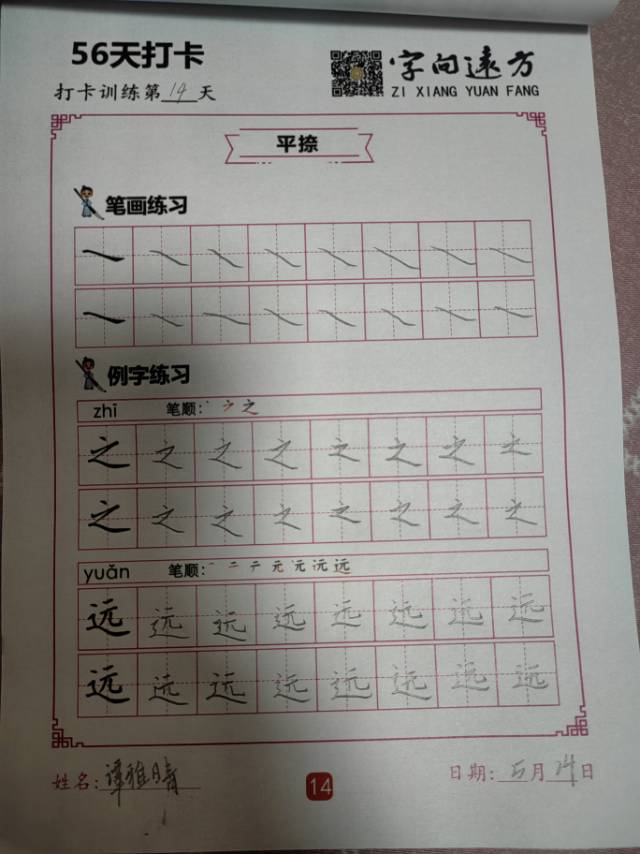 56天打卡
字向遠方
打卡训练第14天
ZI XIANG YUAN FANG
平捺
笔画练习
例字练习
zhī 笔顺: 丶 ㇇ 之
之 之 之 之 之 之 之 之
之 之 之 之 之 之 之 之
yuǎn 笔顺: 一 二 テ 元 元 沅 远
远 远 远 远 远 远 远 远
远 远 远 远 远 远 远 远
姓名: 谭雅晴
14
日期: 5月14日